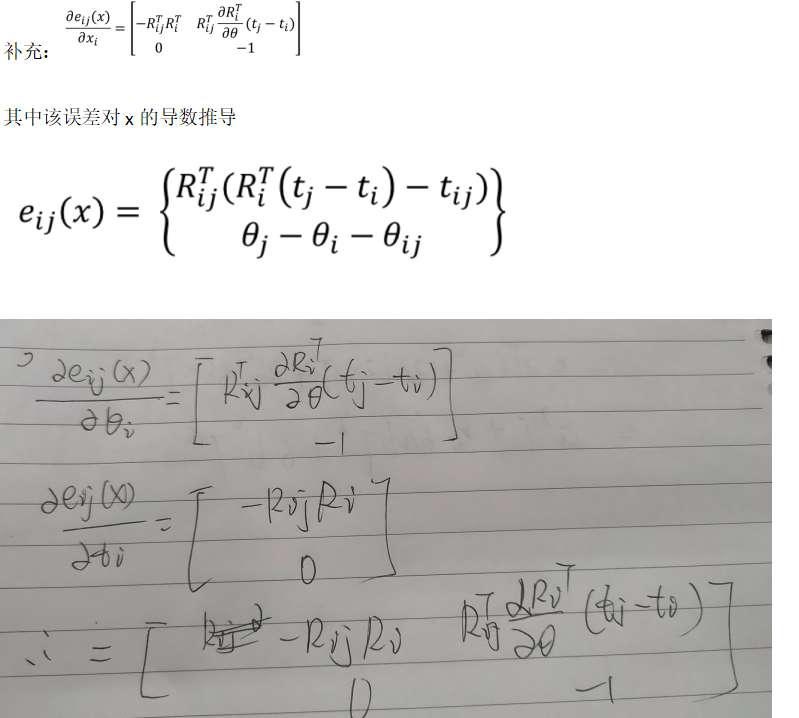 补充: ∂e_{ij}(x)/∂x_i = [ -R_{ij}^T R_i^T  R_{ij}^T ∂R_i^T/∂θ (t_j − t_i) ; 0  −1 ]
其中该误差对 x 的导数推导
e_{ij}(x) = { R_{ij}^T (R_i^T (t_j − t_i) − t_{ij}) ; θ_j − θ_i − θ_{ij} }
∂e_{ij}(x)/∂θ_i = [ R_{ij}^T ∂R_i^T/∂θ (t_j − t_i) ; −1 ]
∂e_{ij}(x)/∂t_i = [ −R_{ij} R_i ; 0 ]
∴ = [ −R_{ij} R_i  R_{ij}^T ∂R_i^T/∂θ (t_j − t_i) ; 0  −1 ]